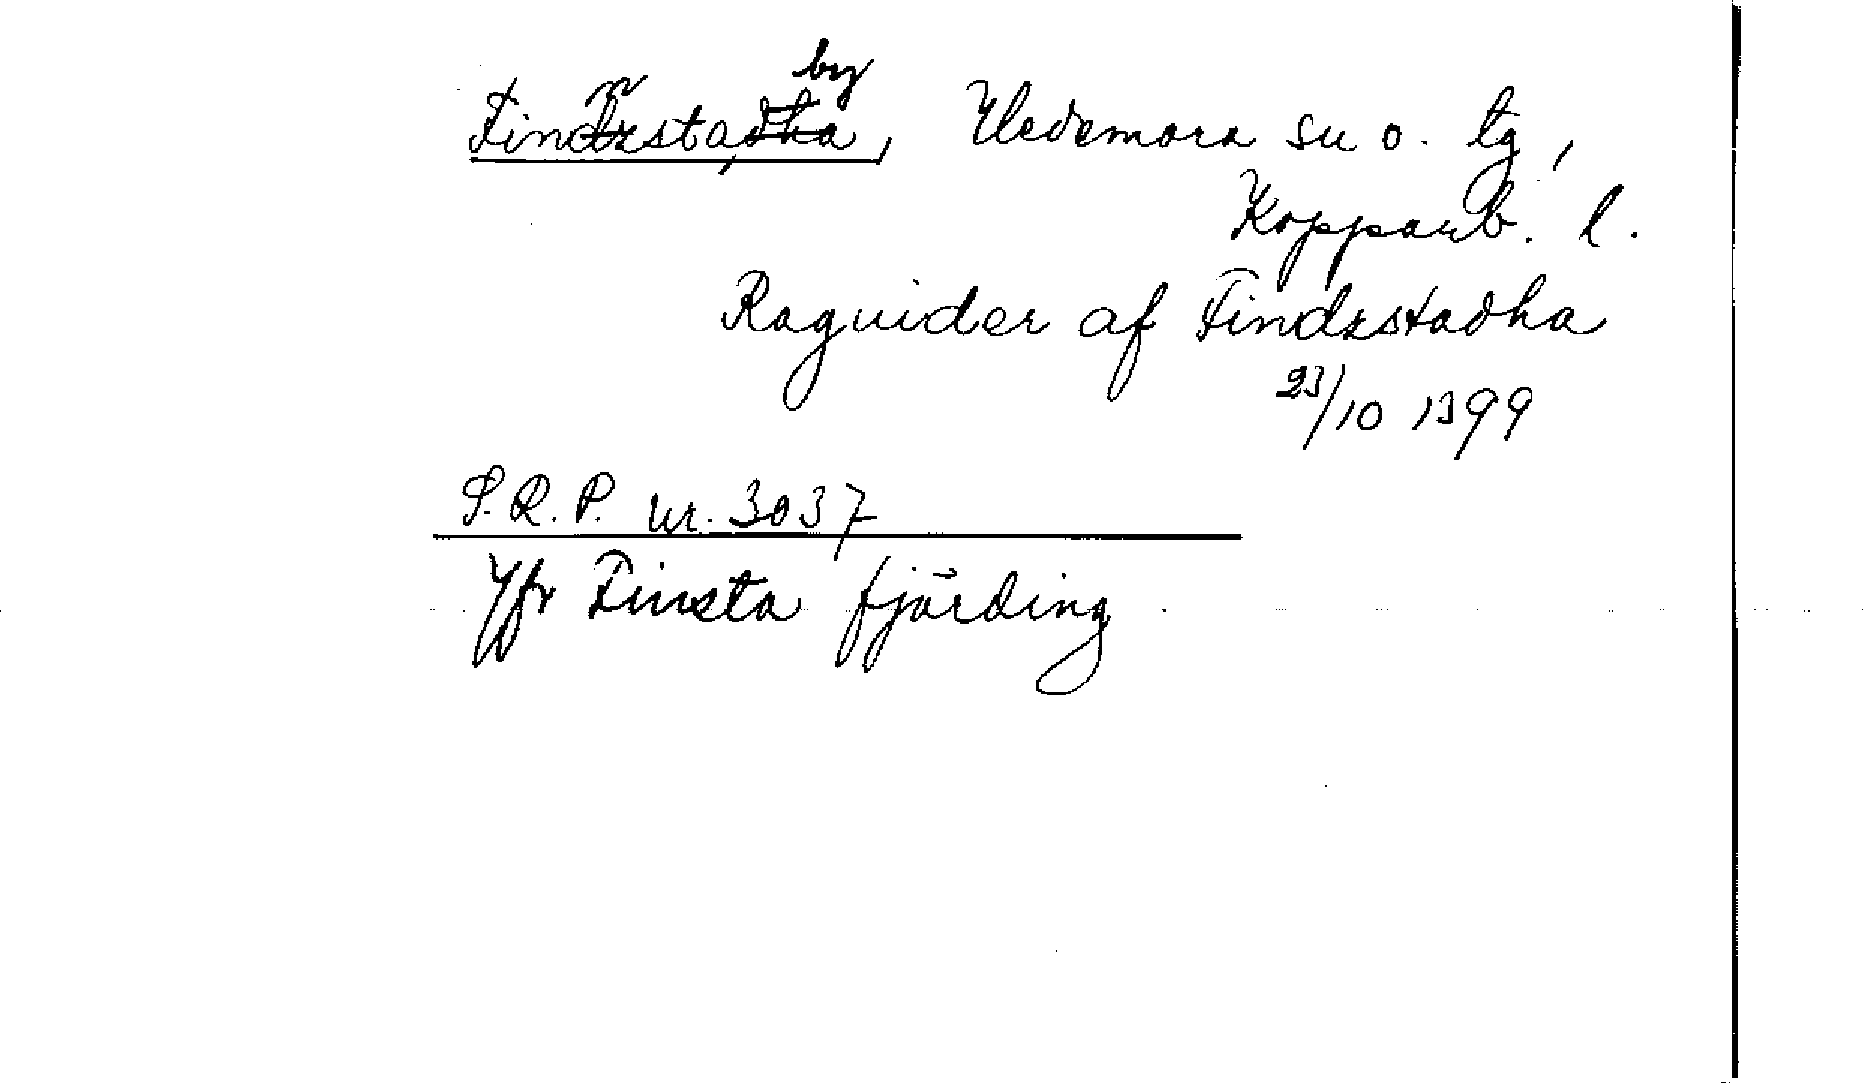 Finnsta, by, Hedemora sn o. tg,
Kopparb. l.
Raguider af Findzstadha
23/10 1399
S.R.P. nr. 3037
Jfr Finsta fjärding